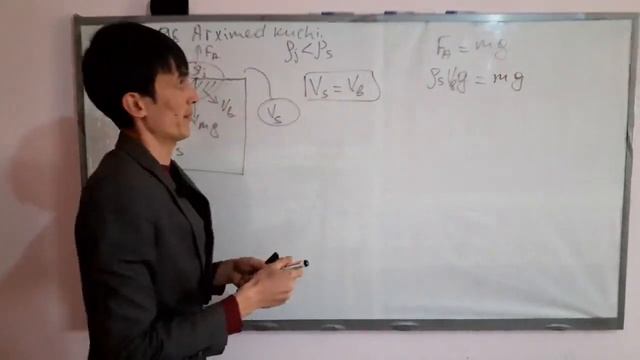 Arximed kuchi.
F_A
ρ_j < ρ_s
ρ_j
V_b
mg
s
V_s
V_s = V_b
F_A = mg
ρ_s V_b g = mg